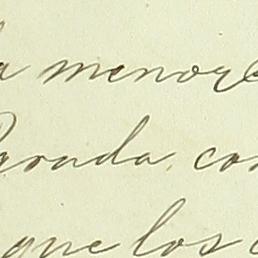 a menore
Parada con
que los